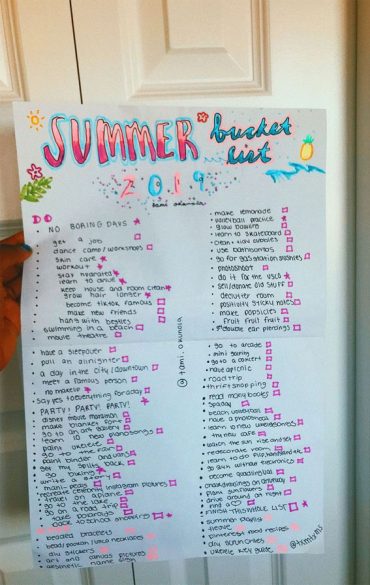 SUMMER bucket list
2019
tami okunola
DO
NO BORING DAYS
get a job
dance camp/workshops
skin care
workout
stay hydrated
learn to drive
keep house and room clean
grow hair longer
become tiktok famous
make new friends
hang with besties
swimming in a beach
movie theatre
have a sleepover
pull an allnighter
a day in the city/downtown
meet a famous person
no makeup
say yes to everything for a day
PARTY! PARTY! PARTY!
disney movie marathon
make blanket fort
go to an art gallery
learn 10 new piano songs
paint
go to the
paint
get my splits back
go
write a story
mani-pedi
instagram pictures
recreate celebrity
travel on a plane
go to the lake
go on a road trip
take polaroids
back to school shopping
beaded bracelets
diy stickers
art and canvas pictures
aesthetic name sign
make lemonade
volleyball practice
glow bowling
learn to skateboard
clean + kiwi bubbles
use bathbombs
go for gas station slushies
photoshoot
do it for the vsco
sell/donate old stuff
declutter room
positivity sticky notes
make popsicles
fruit fruit fruit
double ear piercings
go to arcade
mini golfing
go to a concert
have a picnic
road trip
thrift shopping
read more books
spa day
beach volleyball
have a photoshoot
learn to
try new cafe
watch the sun rise and set
redecorate room
learn to do flip, handstand etc
go 5km without electronics
become
chalk drawings on driveway
plant sunflowers
drive around at night
find a
FINISH THIS WHOLE LIST
summer playlist
pinterest food recipes
diy scrunchies
ukelele key guide
@tami.okunola